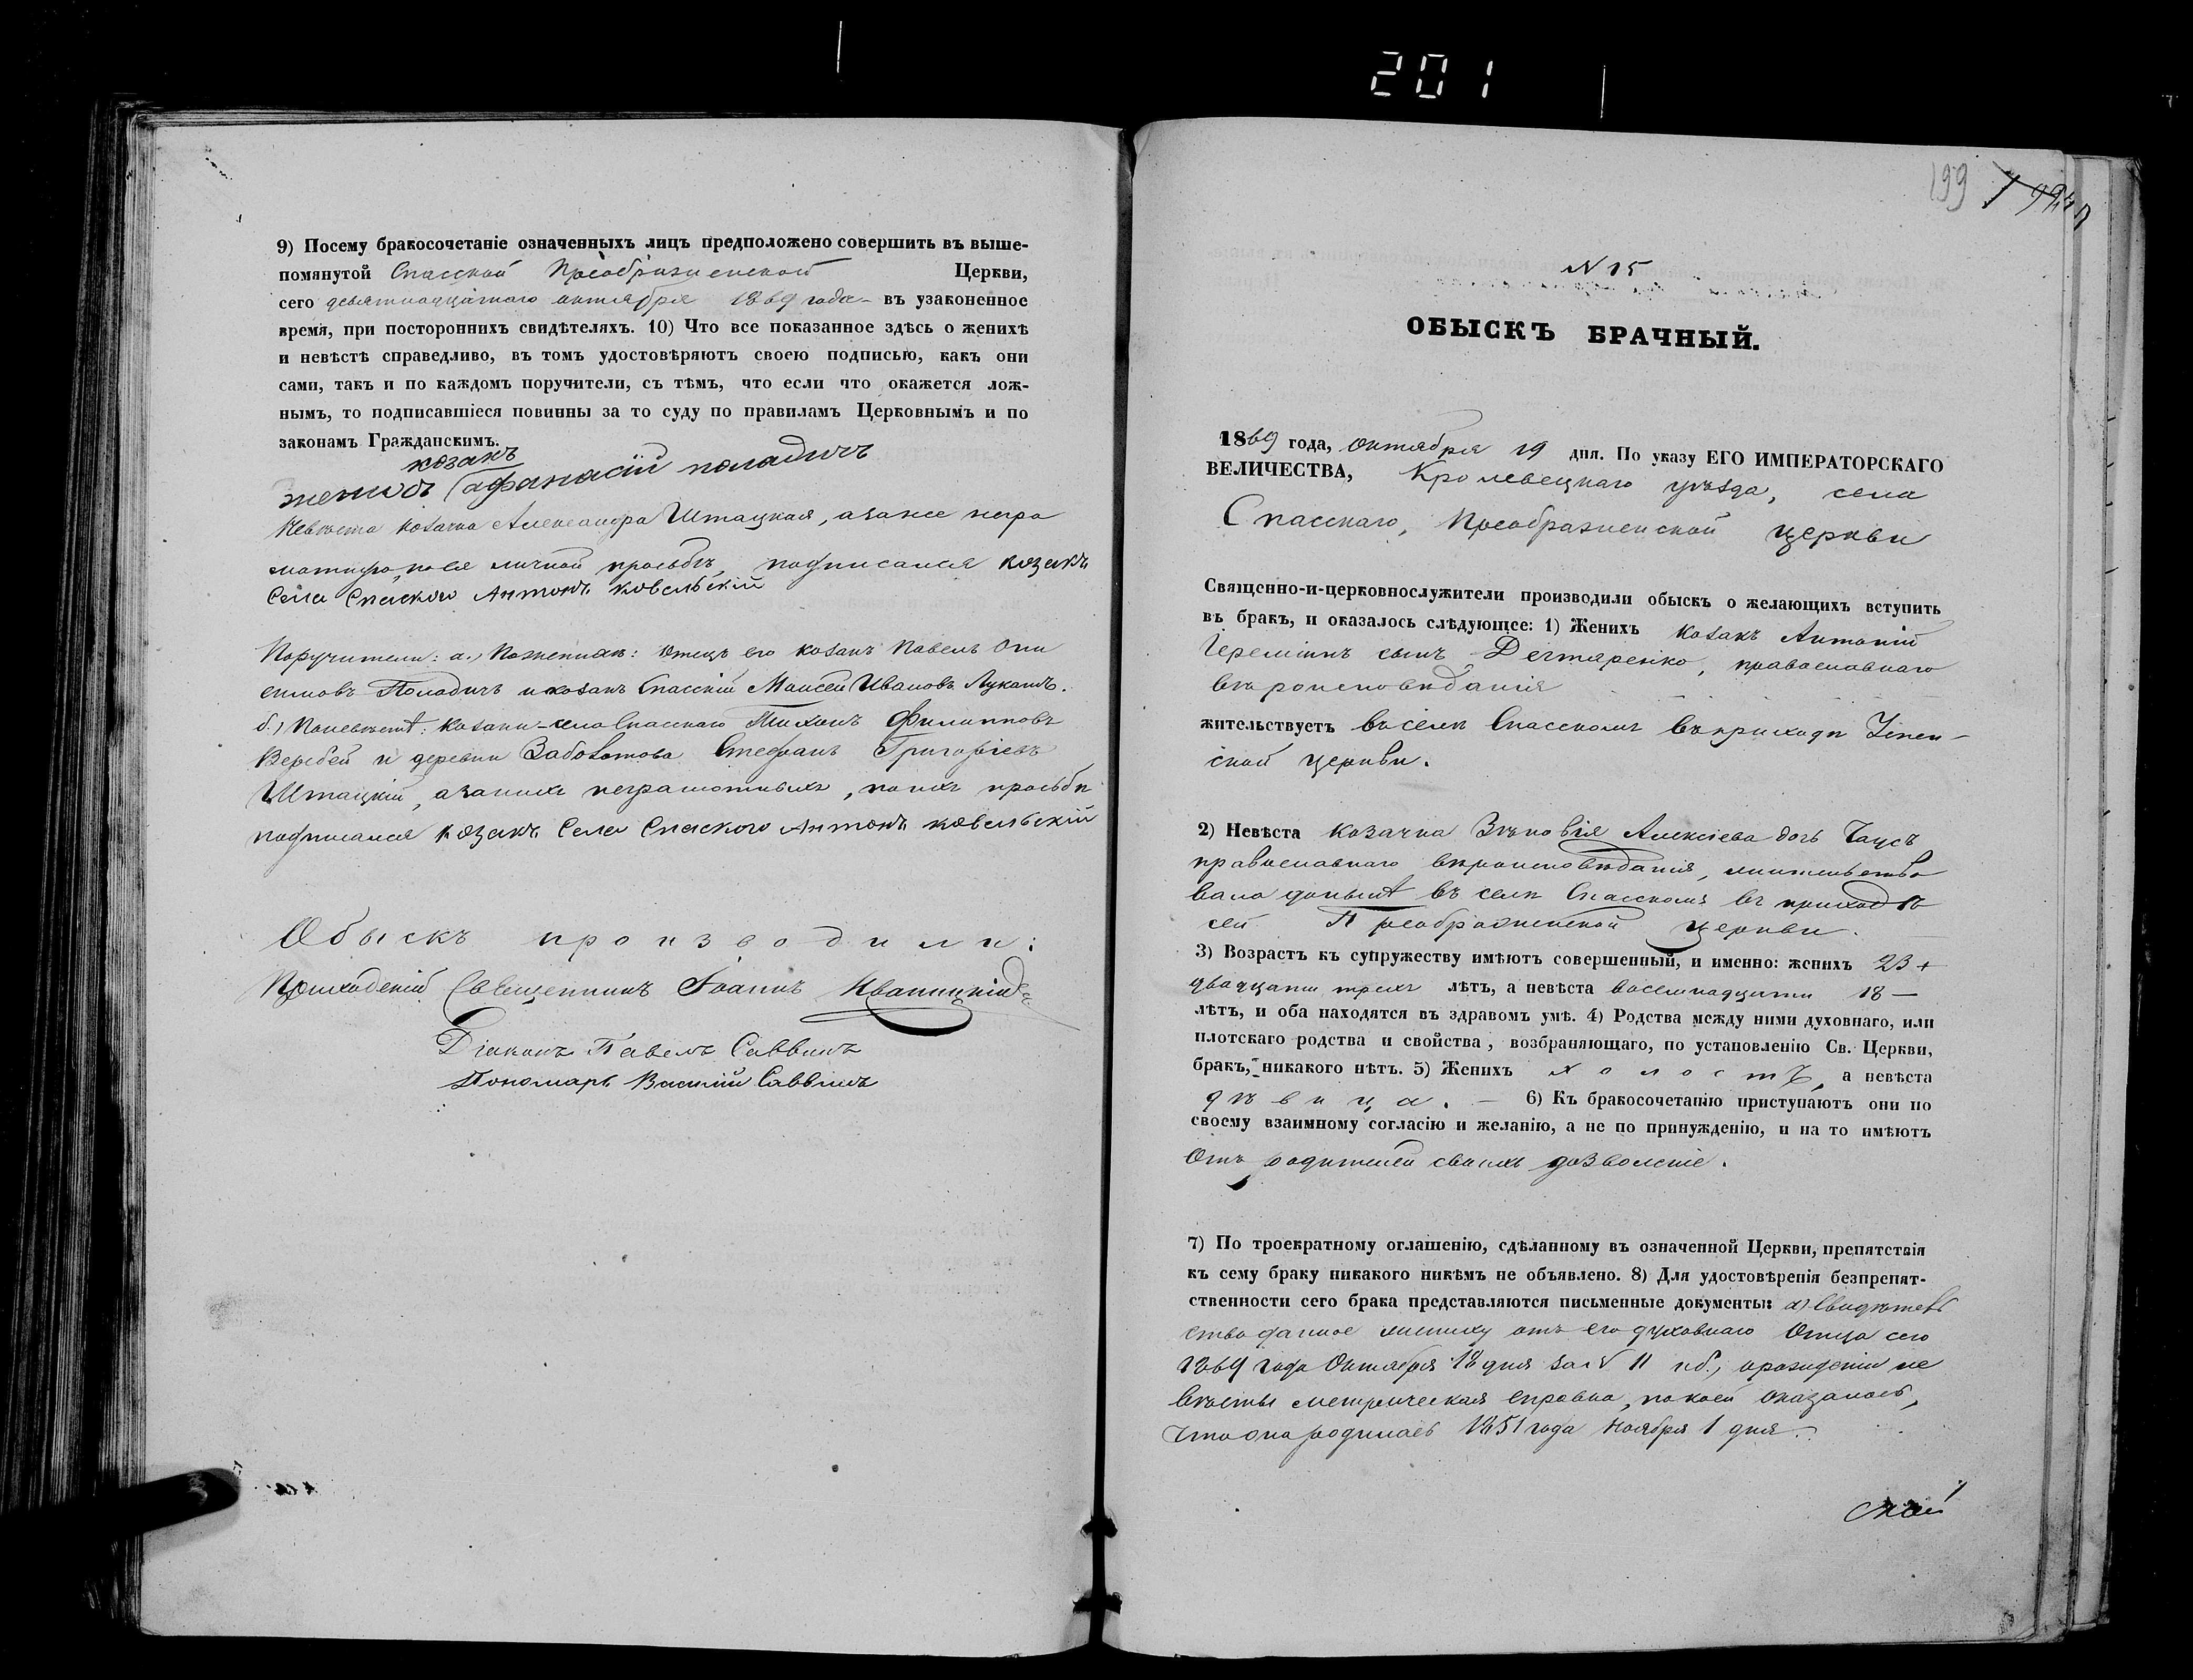 201
9) Посему бракосочетаніе означенныхъ лицъ предположено совершить въ выше-
помянутой Спасской Преображенской Церкви,
сего девятнадцатаго октября 1869 года - въ узаконенное
время, при постороннихъ свидѣтеляхъ. 10) Что все показанное здѣсь о женихѣ
и невѣстѣ справедливо, въ томъ удостовѣряютъ своею подписью, какъ они
сами, такъ и по каждомъ поручители, съ тѣмъ, что если что окажется лож-
нымъ, то подписавшіеся повинны за то суду по правиламъ Церковнымъ и по
законамъ Гражданскимъ.
козакъ
афанасій поладичъ
Невѣста козачка Александра Штацкая, а за нее негра
мотную, по ея личной просьбѣ, подписался козакъ
Села Спаского Антонъ ковельскій
Поручители: а.) По женихѣ: Отецъ его козакъ Павелъ Они
симовъ Поладичъ и козакъ Спасскій Моисей Ивановъ Лукашъ.
б.) По невѣстѣ: козаки - села Спасскаго Тихонъ Филипповъ
Вербей и деревни Заболотова Стефанъ Григорьевъ
Штацкій, а за нихъ неграмотныхъ, по ихъ просьбѣ
подписался козакъ Села Спаского Антонъ ковельскій
Обыскъ производили:
Приходскій Священникъ Іоаннъ Иваницкій
Діаконъ Павелъ Саввичъ
Пономарь Василій Саввичъ
199
N 15
ОБЫСКЪ БРАЧНЫЙ.
1869 года, Октября 19 дня. По указу ЕГО ИМПЕРАТОРСКАГО
ВЕЛИЧЕСТВА, Кролевецкаго уѣзда, села
Спасскаго, Преображенской церкви
Священно-и-церковнослужители производили обыскъ о желающихъ вступить
въ бракъ, и оказалось слѣдующее: 1) Женихъ козакъ Антоній
Іереміинъ сынъ Дегтяренко, православнаго
вѣроисповѣданія
жительствуетъ въ селѣ Спасскомъ въ приходѣ Успен-
ской церкви.
2) Невѣста козачка Зѣновія Алексіева дочь Чаусъ
православнаго вѣроисповѣданія, жительство
вала донынѣ въ селѣ Спасскомъ въ приходѣ
сей Преображенской церкви.
3) Возрастъ къ супружеству имѣютъ совершенный, и именно: женихъ 23
двадцати трехъ лѣтъ, а невѣста восемнадцати 18 —
лѣтъ, и оба находятся въ здравомъ умѣ. 4) Родства между ними духовнаго, или
плотскаго родства и свойства, возбраняющаго, по установленію Св. Церкви,
бракъ, никакого нѣтъ. 5) Женихъ холостъ, а невѣста
дѣвица. — 6) Къ бракосочетанію приступаютъ они по
своему взаимному согласію и желанію, а не по принужденію, и на то имѣютъ
Отъ родителей своихъ дозволеніе.
7) По троекратному оглашенію, сдѣланному въ означенной Церкви, препятствія
къ сему браку никакого никѣмъ не объявлено. 8) Для удостовѣренія безпрепят-
ственности сего брака представляются письменные документы: а) Свидѣтель
ство данное жениху отъ его духовнаго Отца сего
1869 года Октября 18 дня за N 11 и б., о рожденіи не
вѣсты метрическая справка, по коей оказалось,
что она родилась 1851 года Ноября 1 дня.